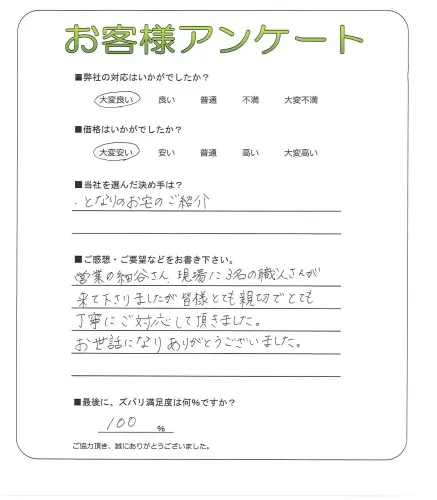 お客様アンケート
■弊社の対応はいかがでしたか？
大変良い 良い 普通 不満 大変不満
■価格はいかがでしたか？
大変安い 安い 普通 高い 大変高い
■当社を選んだ決め手は？
・となりのお宅のご紹介
■ご感想・ご要望などをお書き下さい。
営業の細谷さん、現場に3名の職人さんが
来て下さりましたが皆様とても親切でとても
丁寧にご対応して頂きました。
お世話になりありがとうございました。
■最後に、ズバリ満足度は何%ですか？
100 %
ご協力頂き、誠にありがとうございました。